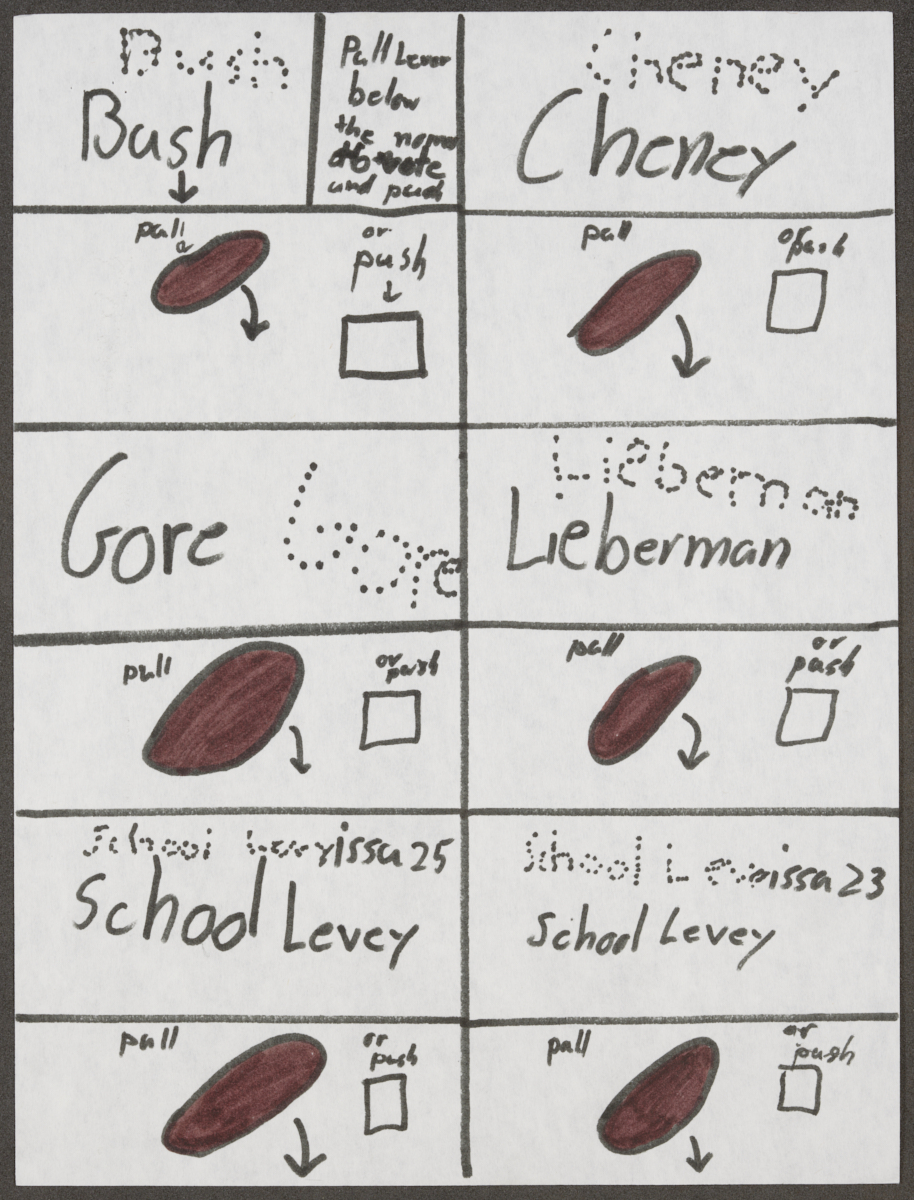 Bush
Bush
Pull Lever
below
the
vote
and push
Cheney
Cheney
pull
or
push
pull
or push
Gore Gore
Lieberman
Lieberman
pull
or push
pull
or
push
School issa 25
School Levey
School issa 23
School Levey
pull
or
push
pull
or
push